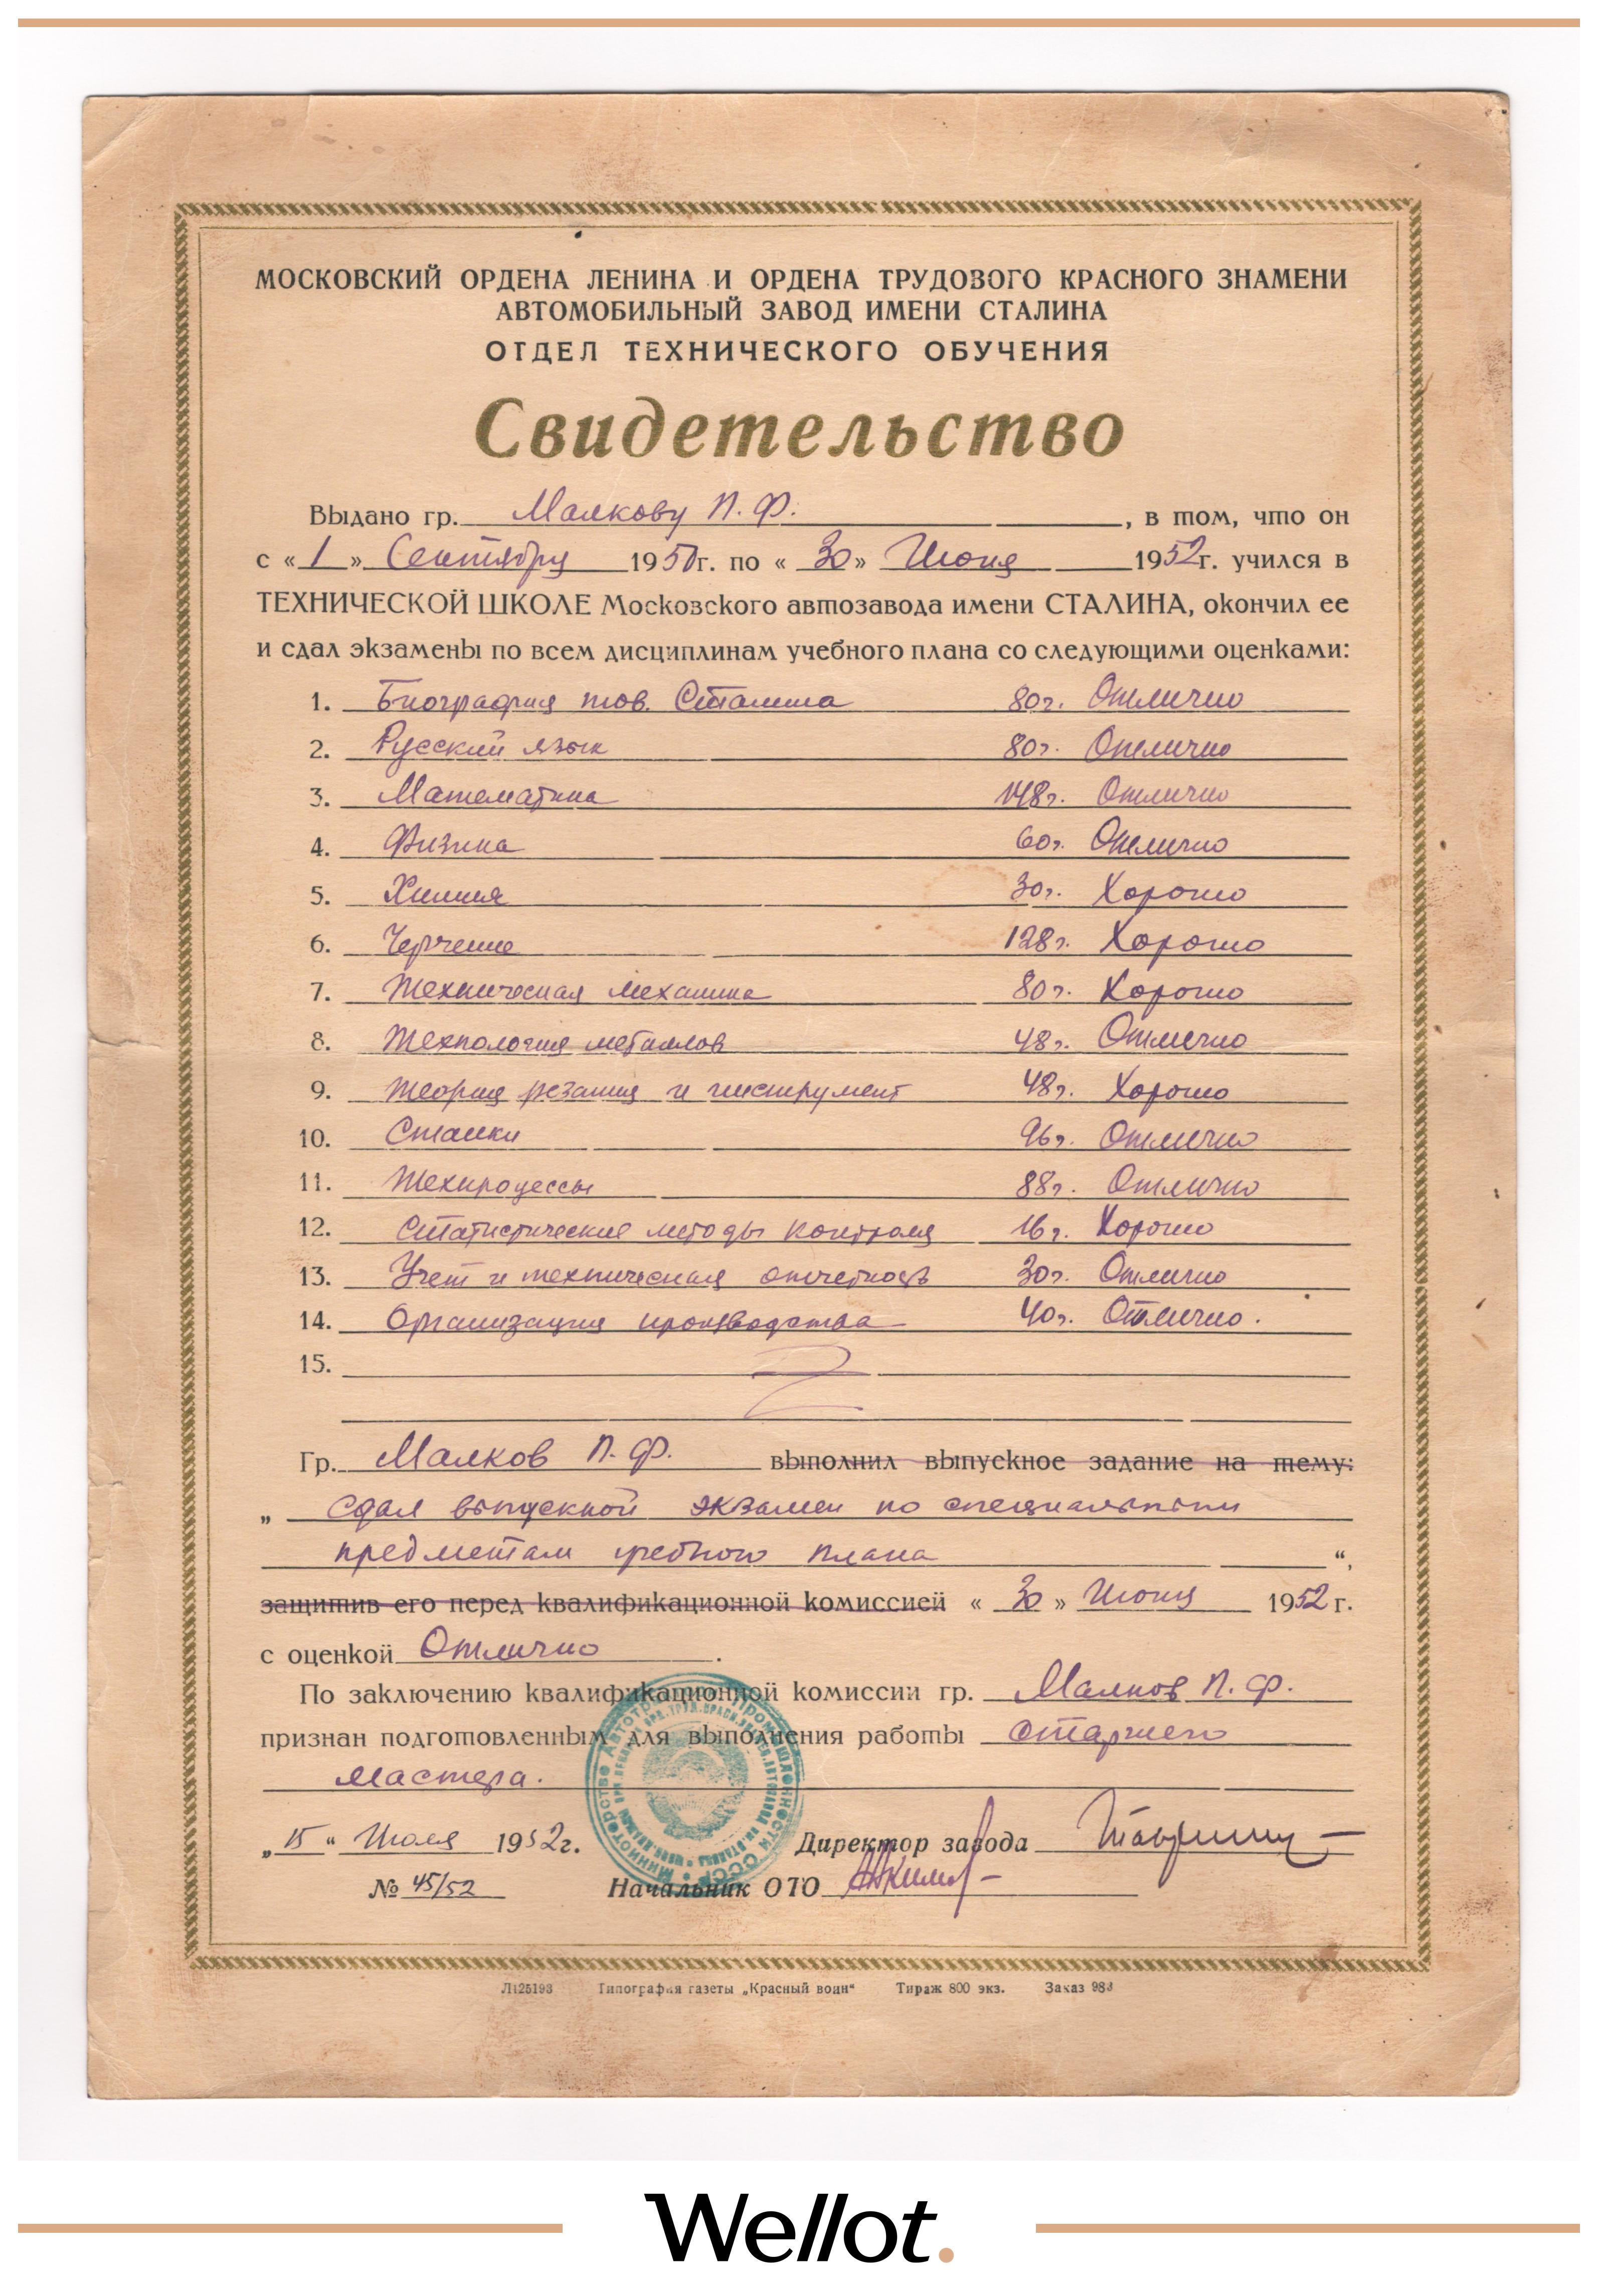 МОСКОВСКИЙ ОРДЕНА ЛЕНИНА И ОРДЕНА ТРУДОВОГО КРАСНОГО ЗНАМЕНИ
АВТОМОБИЛЬНЫЙ ЗАВОД ИМЕНИ СТАЛИНА
ОТДЕЛ ТЕХНИЧЕСКОГО ОБУЧЕНИЯ
Свидетельство
Выдано гр. Малкову П. Ф. , в том, что он
с « 1 » Сентября 1950г. по « 30 » Июня 1952г. учился в
ТЕХНИЧЕСКОЙ ШКОЛЕ Московского автозавода имени СТАЛИНА, окончил ее
и сдал экзамены по всем дисциплинам учебного плана со следующими оценками:
1. Биография тов. Сталина 80г. Отлично
2. Русский язык 80г. Отлично
3. Математика 148г. Отлично
4. Физика 60г. Отлично
5. Химия 30г. Хорошо
6. Черчение 128г. Хорошо
7. Техническая механика 80г. Хорошо
8. Технология металлов 48г. Отлично
9. Теория резания и инструмент 48г. Хорошо
10. Станки 96г. Отлично
11. Техпроцессы 88г. Отлично
12. Статистические методы контроля 16г. Хорошо
13. Учет и техническая отчетность 30г. Отлично
14. Организация производства 40г. Отлично.
15.
Гр. Малков П. Ф. выполнил выпускное задание на тему:
„ Сдал выпускной экзамен по специальным
предметам учебного плана “,
защитив его перед квалификационной комиссией « 30 » Июня 1952г.
с оценкой Отлично .
По заключению квалификационной комиссии гр. Малков П. Ф.
признан подготовленным для выполнения работы старшего
мастера.
„ 15 “ Июля 1952г. Директор завода
№ 45/52 Начальник ОТО
Л125193 Типография газеты „Красный воин“ Тираж 800 экз. Заказ 983
Wellot.